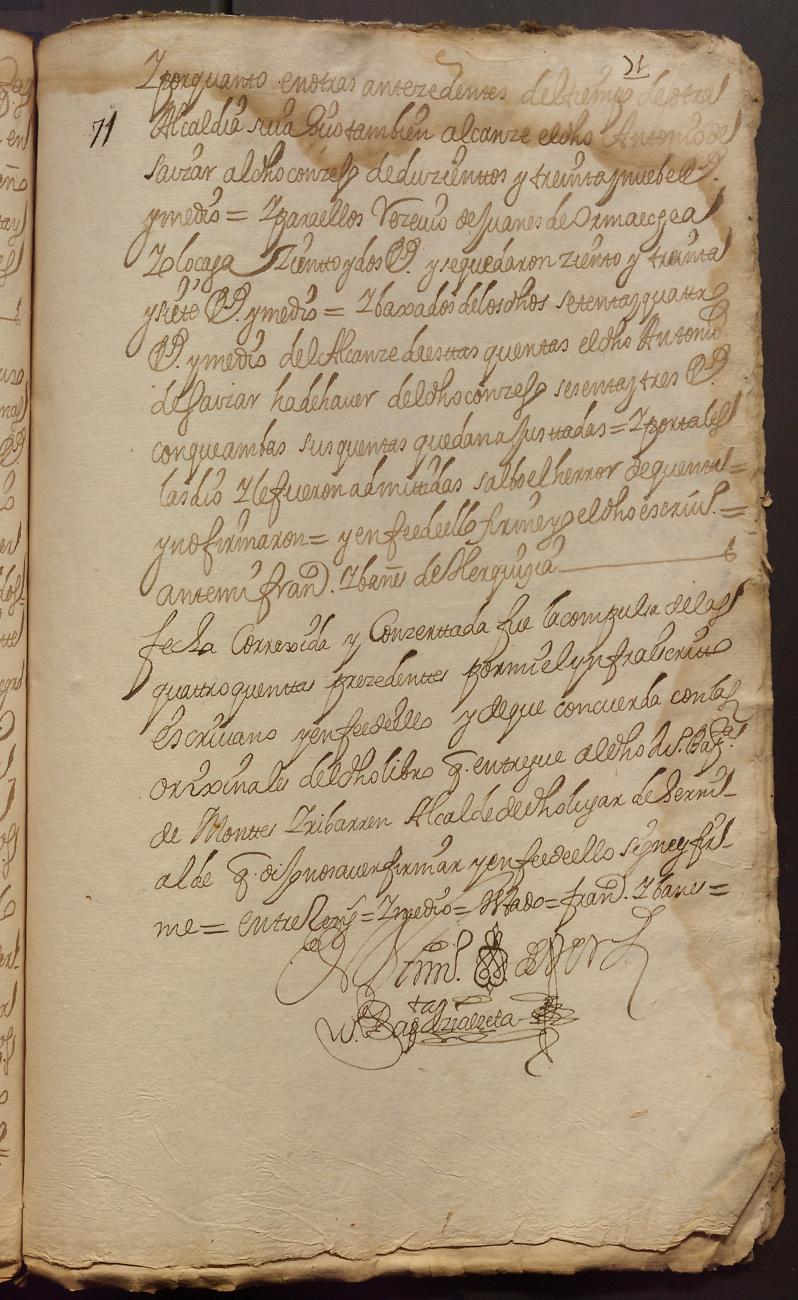 21
71
Y por quanto en otras antezedentes del tiempo de otra
Alcaldia sua hubo tambien alcanze el dho Antonio de
Saviar al dho conzejo de duzienttos y treinta y nuebe Rs.
y medio = Y para ellos Rezevio de Juanes de Ormaechea
Y locaga Ziento y dos Rs. y se quedaron ziento y treinta
y siete Rs. y medio = Y baxados de los dhos setenta y quattro
Rs. y medio del Alcanze de esttas quentas el dho Antonio
de Saviar ha de haver del dho conzejo sesenta y tres Rs.
con que ambas sus quentas quedan ajusttadas = Y por tales
las dio Y le fueron admittidas salbo el herror de quentas =
y no firmaron = y en fee de ello firme yo el dho escriuo. =
ante mi Frando. Ybañes de Herquizia
fecha Correxida y Conzerttada fue la compulsa de las
quattro quenttas prezedenttes por mi el ynfraescritto
escrivano y en fee de ello y de que concuerda con las
orixinales del dho libro q. entregue al dho Dn. Bapta.
de Monttes Yribarren Alcalde de dho lugar de Hernis
alde q. dijo no saver firmar y en fee de ello signe y fir
me = entre Rengs = Y medio = ttado = Frando. Ybanes =
En testimo. de Verd.
Bapta. Azialzeta